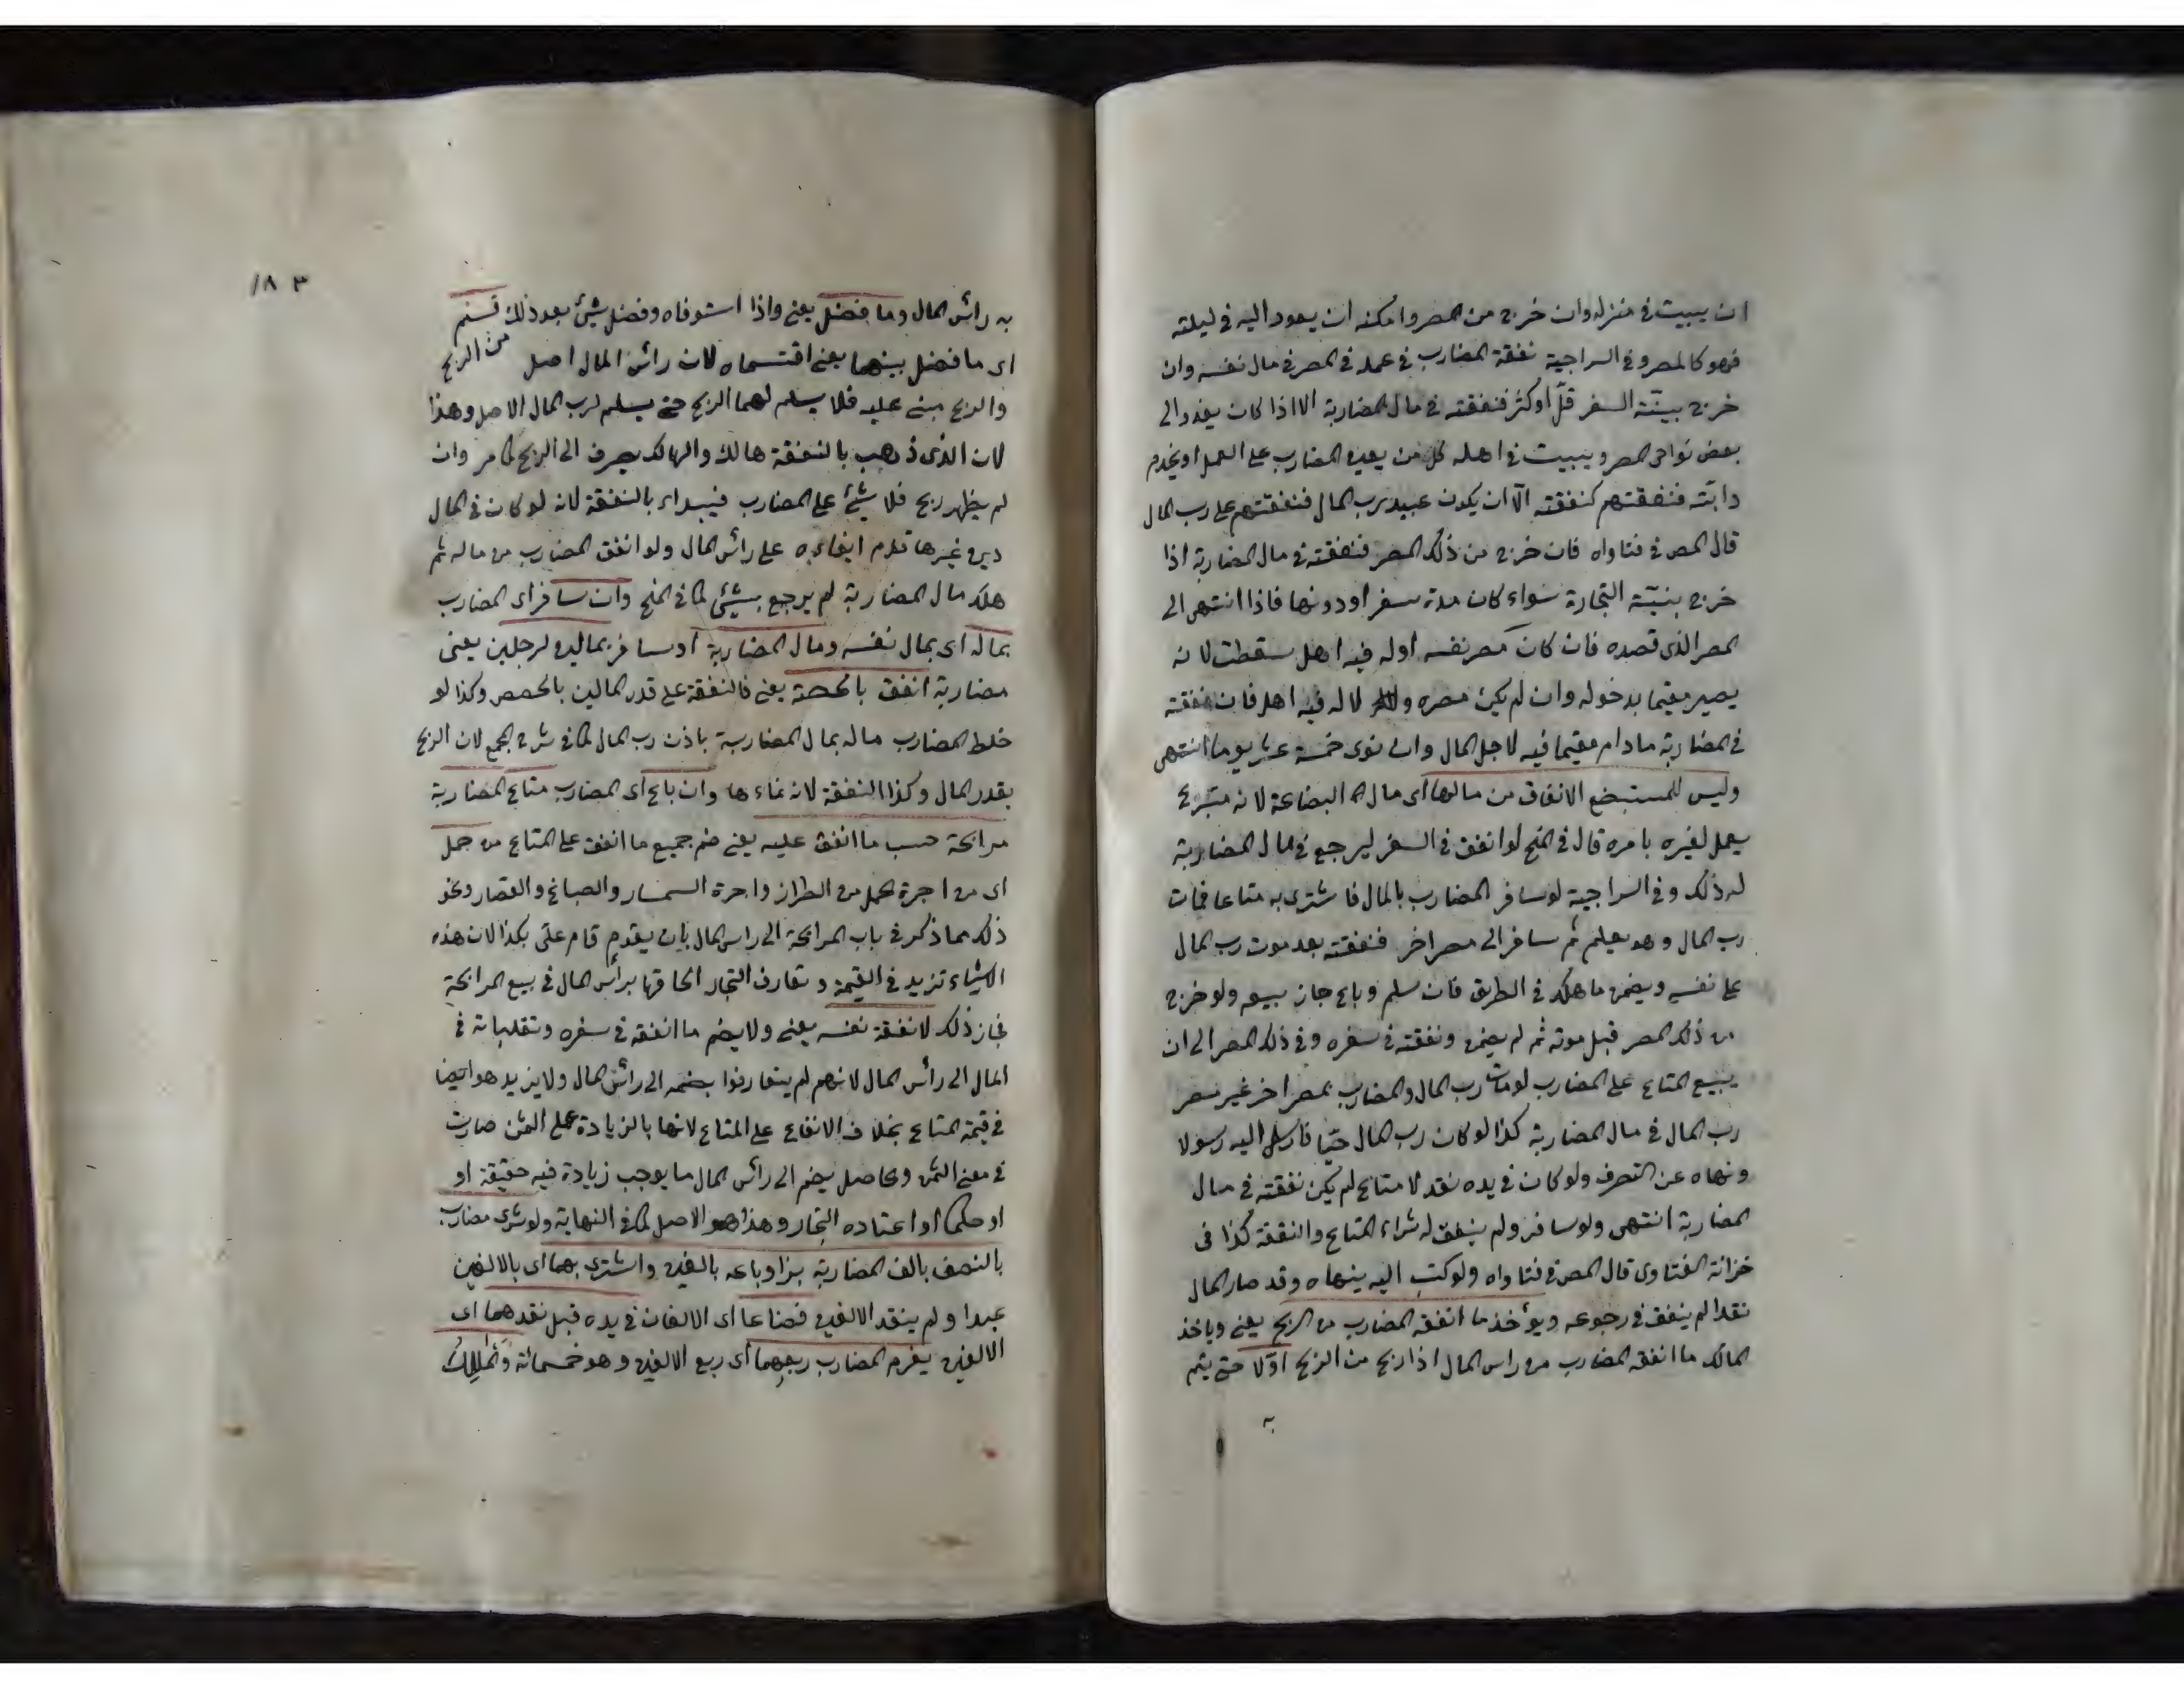 ان يبيت في منزله وان خرج من المصر وامكنه ان يعود اليه في ليلته
فهو كالمصر وفي السراجية نفقة المضارب في عمله في المصر في مال نفسه وان
خرج بنيّة السفر قلّ اوكثر فنفقته في مال المضاربة الا اذا كان يغدو الى
بعض نواحى المصر ويبيت في اهله كل من يعين المضارب على العمل او يخدم
دابته فنفقتهم كنفقته الّا ان يكون عبيد رب المال فنفقتهم على رب المال
قال المص في فتاواه فان خرج من ذلك المصر فنفقته في مال المضاربة اذا
خرج بنيّة التجارة سواء كان مدة سفر او دونها فاذا انتهى الى
المصر الذى قصده فان كان مصر نفسه اوله فيه اهل سقطت لانه
يصير مقيما بدخوله وان لم يكن مصره ولا له فيه اهل فان نفقته
في المضاربة مادام مقيما فيه لاجل المال وان نوى خمسة عشر يوما انتهى
وليس للمستبضع الانفاق من مالها اى مال البضاعة لانه متبرع
يعمل لغيره بامره قال في المنح لوانفق في السفر ليرجع في مال المضاربة
له ذلك وفي السراجية لوسافر المضارب بالمال فاشترى به متاعا فمات
رب المال وهو يعلم ثم سافر الى مصر اخر فنفقته بعد موت رب المال
على نفسه ويضمن ماهلك في الطريق فان سلم وباع جاز بيعه ولو خرج
من ذلك المصر قبل موته ثم لم يضمن ونفقته في سفره وفي ذلك المصر الى ان
يبيع المتاع على المضارب لومات رب المال والمضارب بمصر اخر غير مصر
رب المال في مال المضاربة كذا لو كان رب المال حيّا فارسل اليه رسولا
ونهاه عن التصرف ولو كان في يده نقد لا متاع لم يكن نفقته في مال
المضاربة انتهى ولوسافر ولم ينفق له شراء المتاع والنفقة كذا فى
خزانة الفتاوى قال المص في فتاواه ولوكتب اليه ينهاه وقد صار المال
نقدا لم ينفق في رجوعه ويؤخذ ما انفقه المضارب من الربح يعنى وياخذ
المالك ما انفقه المضارب من راس المال اذا ربح من الربح اوّلا حتى يتم
به
١٨٣
به رأس المال وما فضل يعنى واذا استوفاه وفضل شئ بعد ذلك قسم
اى ما فضل بينهما يعنى اقتسماه لان رأس المال اصل من الربح
والربح مبنى عليه فلا يسلم لهما الربح حتى يسلم لرب المال الاصل وهذا
لان الذى ذهب بالنفقة هالك والهالك يصرف الى الربح كما مر وان
لم يظهر ربح فلا شئ على المضارب فيبداء بالنفقة لانه لو كان في المال
دين غيرها قدم ايفاءه على رأس المال ولو انفق المضارب من ماله ثم
هلك مال المضاربة لم يرجع بشئ كما في المنح وان سافر اى المضارب
بماله اى بمال نفسه ومال المضاربة اوسافر بمالين لرجلين يعنى
مضاربة انفق بالحصة يعنى فالنفقة على قدر المالين بالحصص وكذا لو
خلط المضارب ماله بمال المضاربة باذن رب المال كما في شرح المجمع لان الربح
بقدر المال وكذا النفقة لانه نماءها وان باع اى المضارب متاع المضاربة
مرابحة حسب ما انفق عليه يعنى ضم جميع ما انفق على المتاع من حمل
اى من اجرة الحمل من الطراز واجرة السمسار والصباغ والقصار ونحو
ذلك مما ذكر في باب المرابحة الى راس المال بان يقدم قام علىّ بكذا لان هذه
الاشياء تزيد في القيمة وتعارف التجار الحاقها برأس المال في بيع المرابحة
فجاز ذلك لا نفقة نفسه يعنى ولا يضم ما انفقه في سفره وتقلباته في
المال الى رأس المال لانهم لم يتعارفوا بضمه الى رأس المال ولا يزيد هو ايضا
في قيمة المتاع بخلاف الانفاع على المتاع لانها بالزيادة على الثمن صارت
في معنى الثمن والحاصل يضم الى رأس المال ما يوجب زيادة فيه حقيقة او
او حكما او اعتاده التجار وهذا هو الاصل كما في النهاية ولو شرى مضارب
بالنصف بالف المضاربة بزا وباعه بالفين واشترى بهما اى بالالفين
عبدا ولم ينقد الالفين فضاعا اى الالفان في يده قبل نقدهما اى
الالفين يغرم المضارب ربعهما اى ربع الالفين وهو خمسمائة والمالك